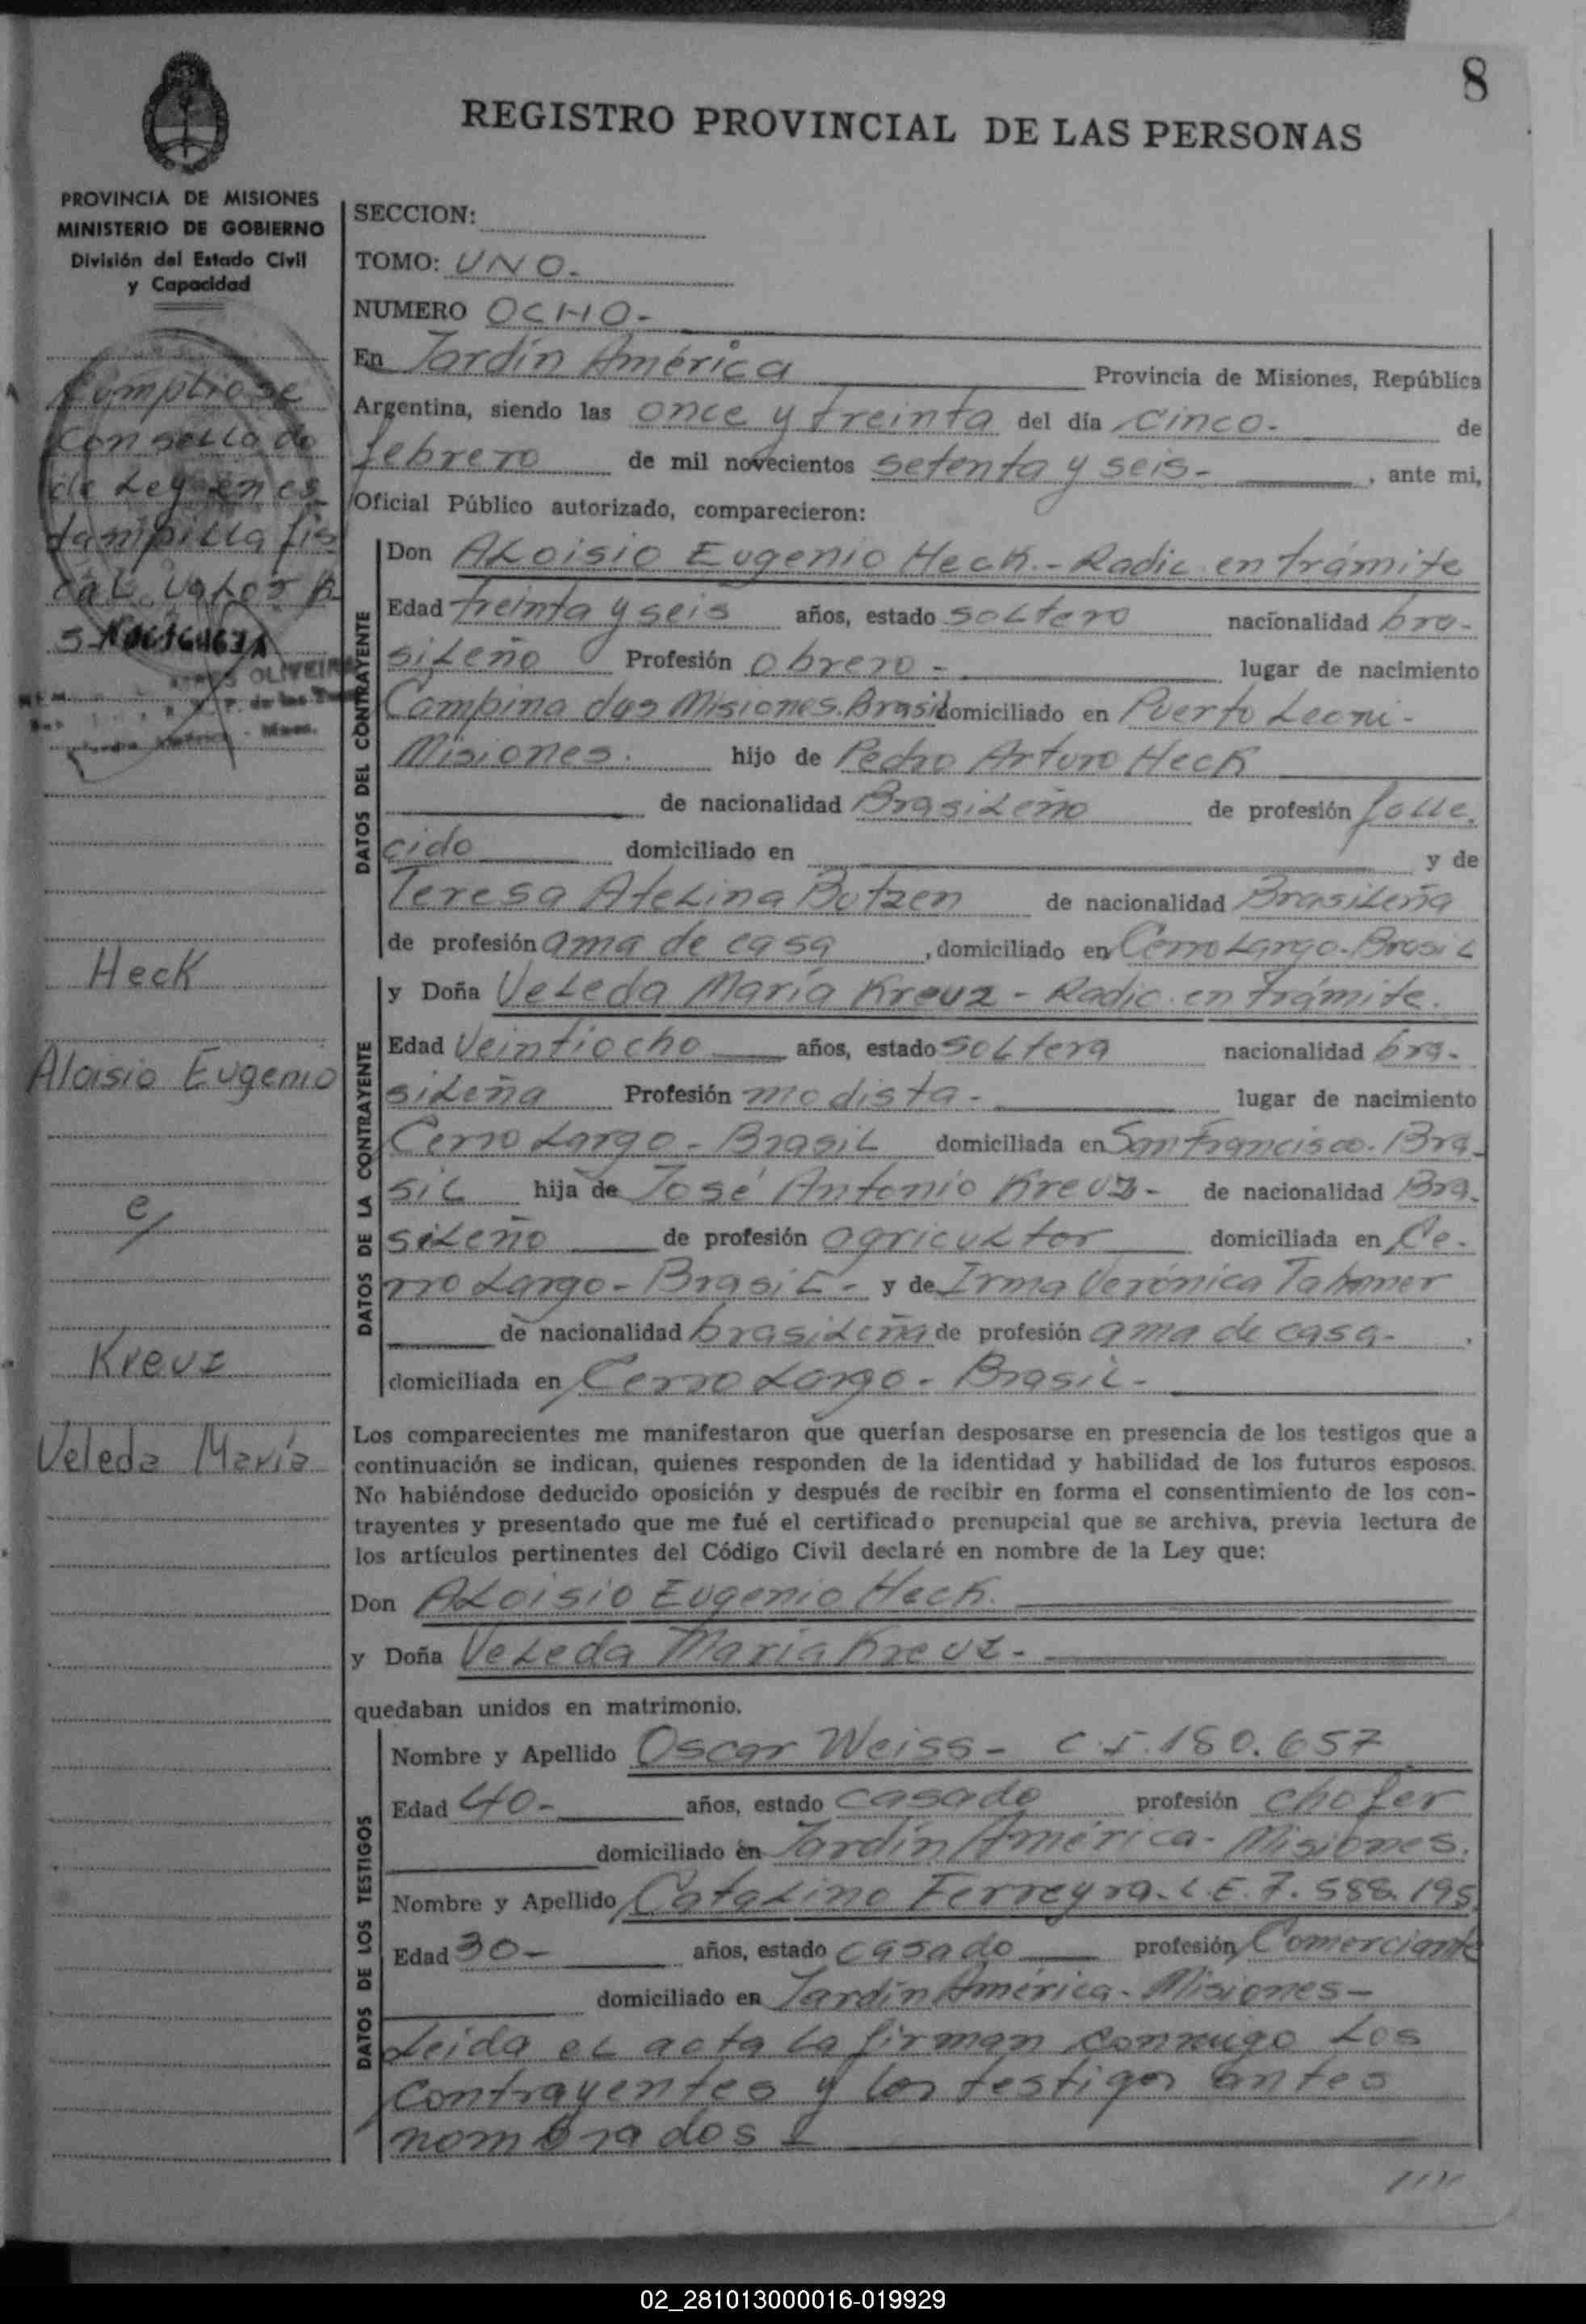 8
REGISTRO PROVINCIAL DE LAS PERSONAS
PROVINCIA DE MISIONES
MINISTERIO DE GOBIERNO
División del Estado Civil
y Capacidad
Cumpliose
con sellado
de Ley en es
tampilla fis
cal valor $
5-
OLIVEIRA
Heck
Aloisio Eugenio
c/
Kreuz
Veleda María
SECCION:
TOMO: UNO.
NUMERO OCHO-
En Jardín América Provincia de Misiones, República
Argentina, siendo las once y treinta del día cinco. de
febrero de mil novecientos setenta y seis- , ante mi,
Oficial Público autorizado, comparecieron:
DATOS DEL CONTRAYENTE
Don Aloisio Eugenio Heck.- Radic. en trámite
Edad treinta y seis años, estado soltero nacionalidad bra-
sileño Profesión obrero - lugar de nacimiento
Campina das Misiones. Brasil domiciliado en Puerto Leoni-
Misiones. hijo de Pedro Arturo Heck
de nacionalidad Brasileño de profesión falle.
cido domiciliado en y de
Teresa Atelina Botzen de nacionalidad Brasileña
de profesión ama de casa , domiciliado en Cerro Largo-Brasil
DATOS DE LA CONTRAYENTE
y Doña Veleda María Kreuz - Radic. en trámite.
Edad Veintiocho años, estado soltera nacionalidad bra-
sileña Profesión modista- lugar de nacimiento
Cerro Largo - Brasil domiciliada en San Francisco- Bra-
sil hija de José Antonio Kreuz- de nacionalidad Bra-
sileño de profesión agricultor domiciliada en Ce-
rro Largo- Brasil- y de Irma Verónica
de nacionalidad brasileña de profesión ama de casa- ,
domiciliada en Cerro Largo- Brasil-
Los comparecientes me manifestaron que querían desposarse en presencia de los testigos que a
continuación se indican, quienes responden de la identidad y habilidad de los futuros esposos.
No habiéndose deducido oposición y después de recibir en forma el consentimiento de los con-
trayentes y presentado que me fué el certificado prenupcial que se archiva, previa lectura de
los artículos pertinentes del Código Civil declaré en nombre de la Ley que:
Don Aloisio Eugenio Heck.
y Doña Veleda María Kreuz-
quedaban unidos en matrimonio.
DATOS DE LOS TESTIGOS
Nombre y Apellido Oscar Weiss- C.I. 180.657
Edad 40- años, estado casado profesión chofer
domiciliado en Jardín América- Misiones.
Nombre y Apellido Catalino Ferreyra. L.E. 7.588.195
Edad 30- años, estado casado profesión Comerciante
domiciliado en Jardín América- Misiones-
Leida el acta la firman conmigo los
contrayentes y los testigos antes
nombrados-
////
02_281013000016-019929